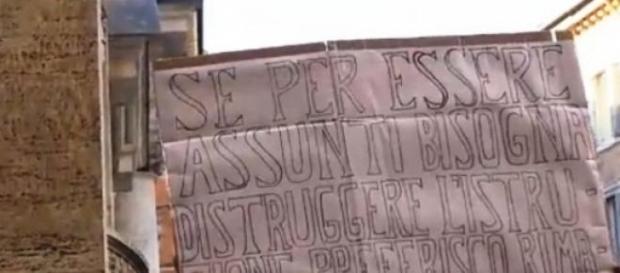 SE PER ESSERE
ASSUNTI BISOGNA
DISTRUGGERE L'ISTRU-
ZIONE PREFERISCO RIMA-